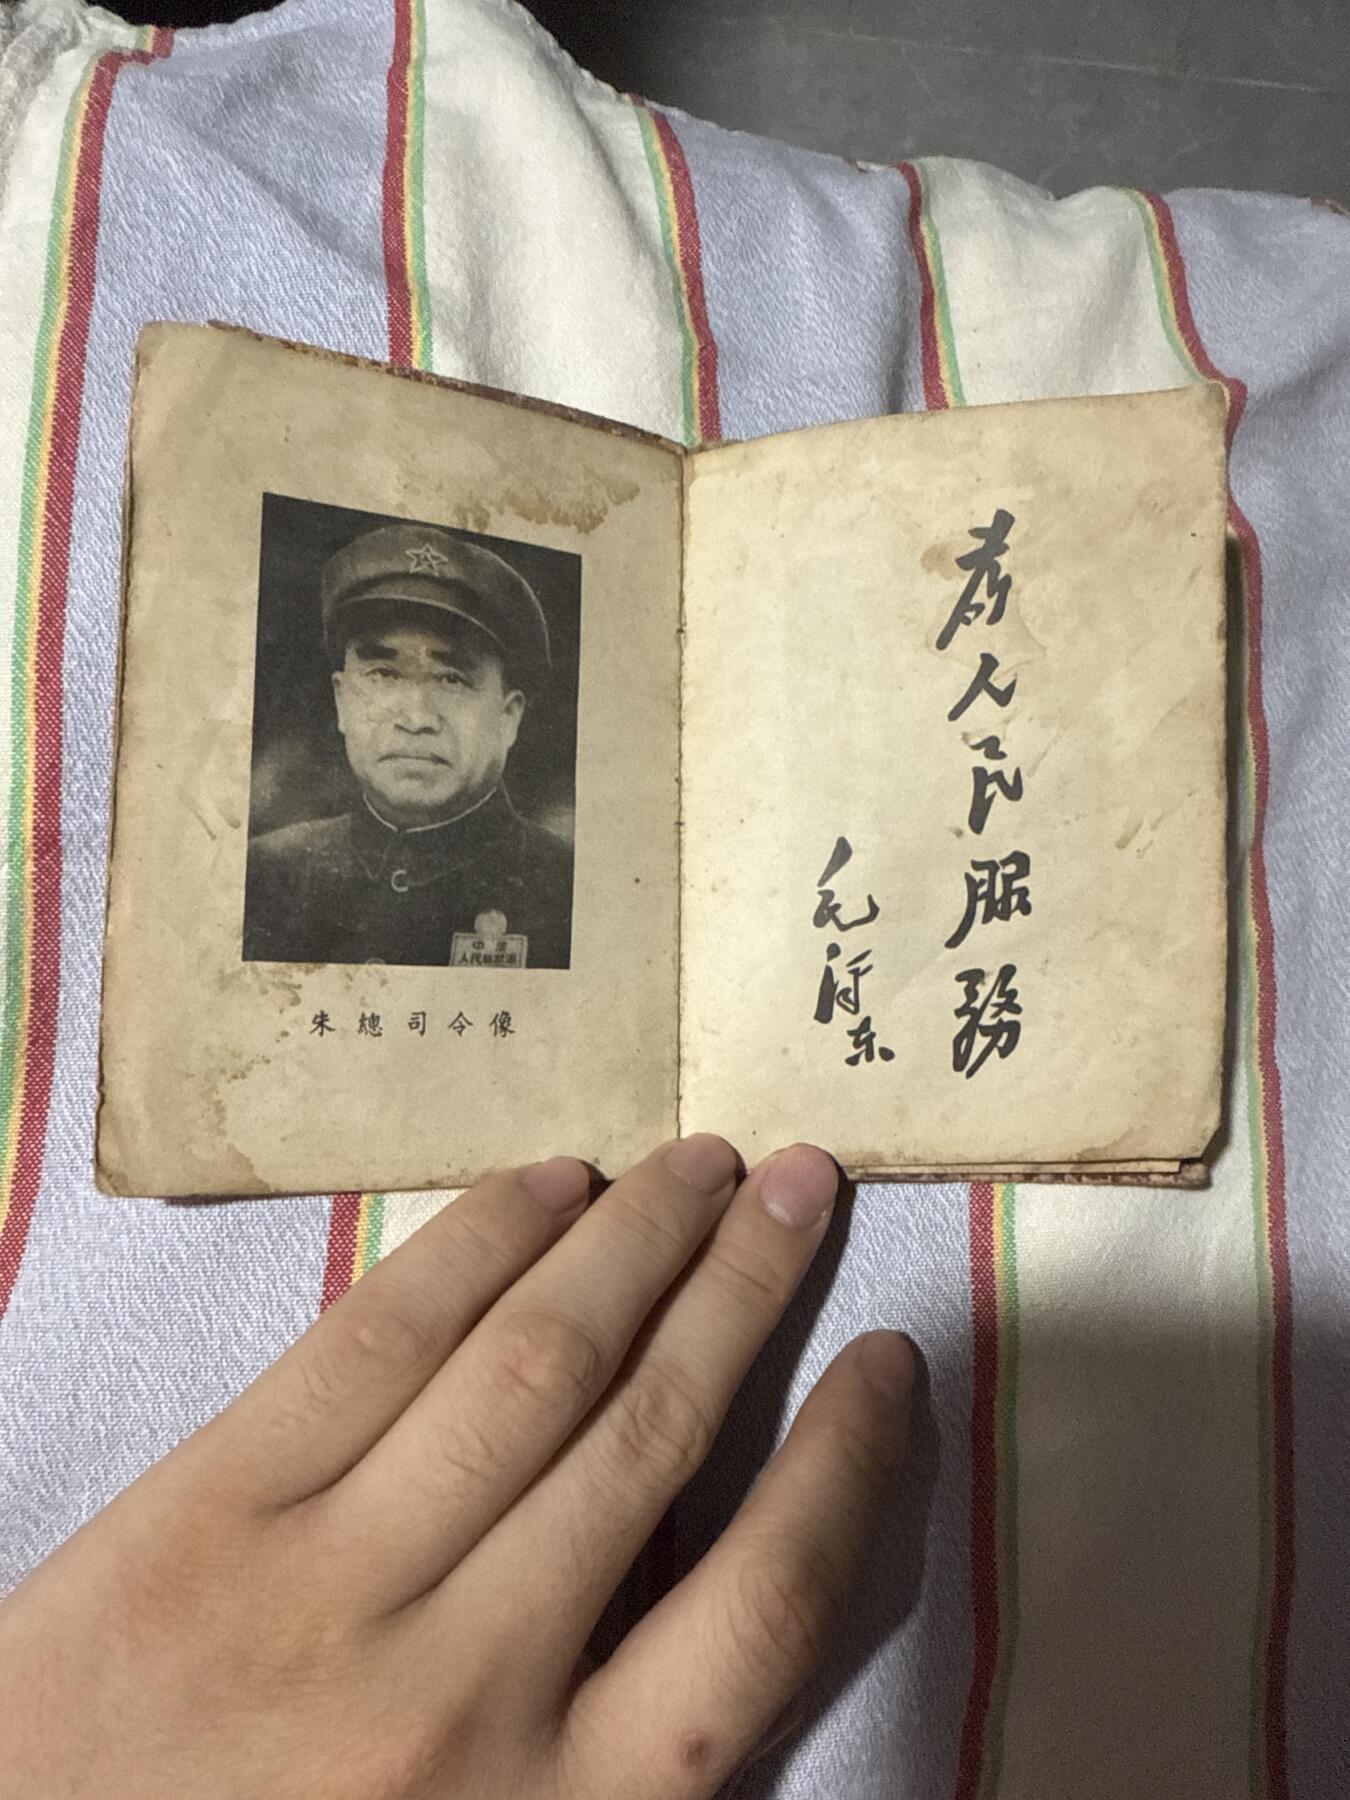 中国
人民解放軍
朱總司令像
為人民服務
毛泽东